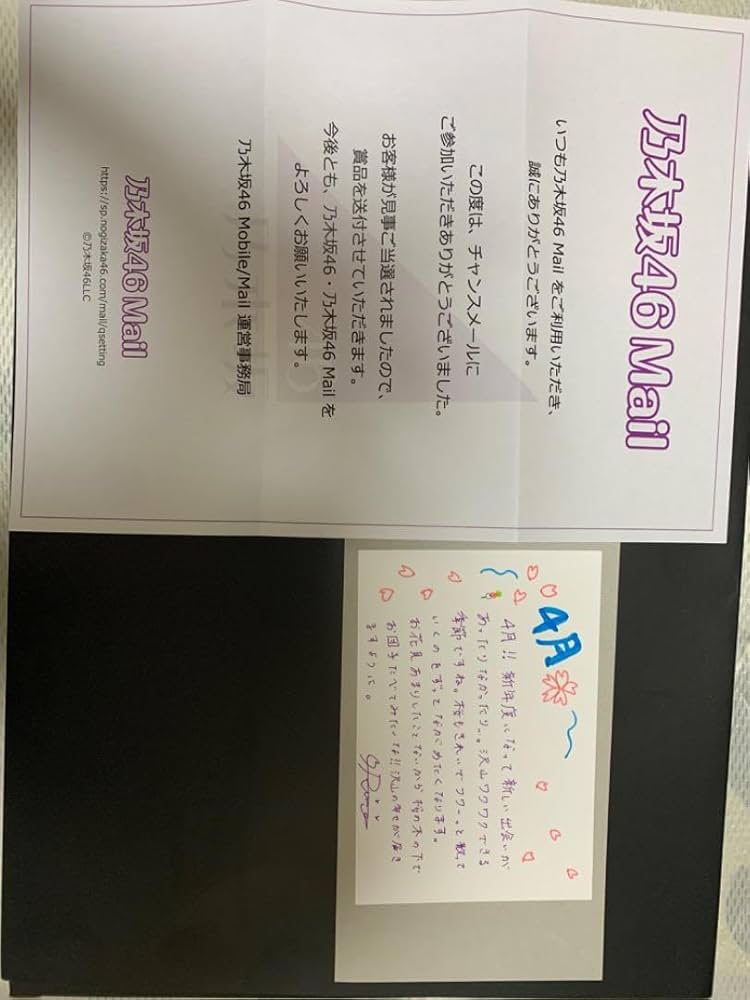 乃木坂46 Mail
いつも乃木坂46 Mail をご利用いただき、
誠にありがとうございます。
この度は、チャンスメールに
ご参加いただきありがとうございました。
お客様が見事ご当選されましたので、
賞品を送付させていただきます。
今後とも、乃木坂46・乃木坂46 Mail を
よろしくお願いいたします。
乃木坂46 Mobile/Mail 運営事務局
乃木坂46 Mail
https://sp.nogizaka46.com/mail/qsetting
©乃木坂46LLC
4月
4月!! 新年度になって新しい出会いが
あったりなかったり...。沢山ワクワクできる
季節ですね。桜もきれいでフワーっと散って
いくのをずっとながめたくなります。
お花見あまりしたことないから桜の木の下で
お団子たべてみたいな!! 沢山の幸せが届き
ますように。